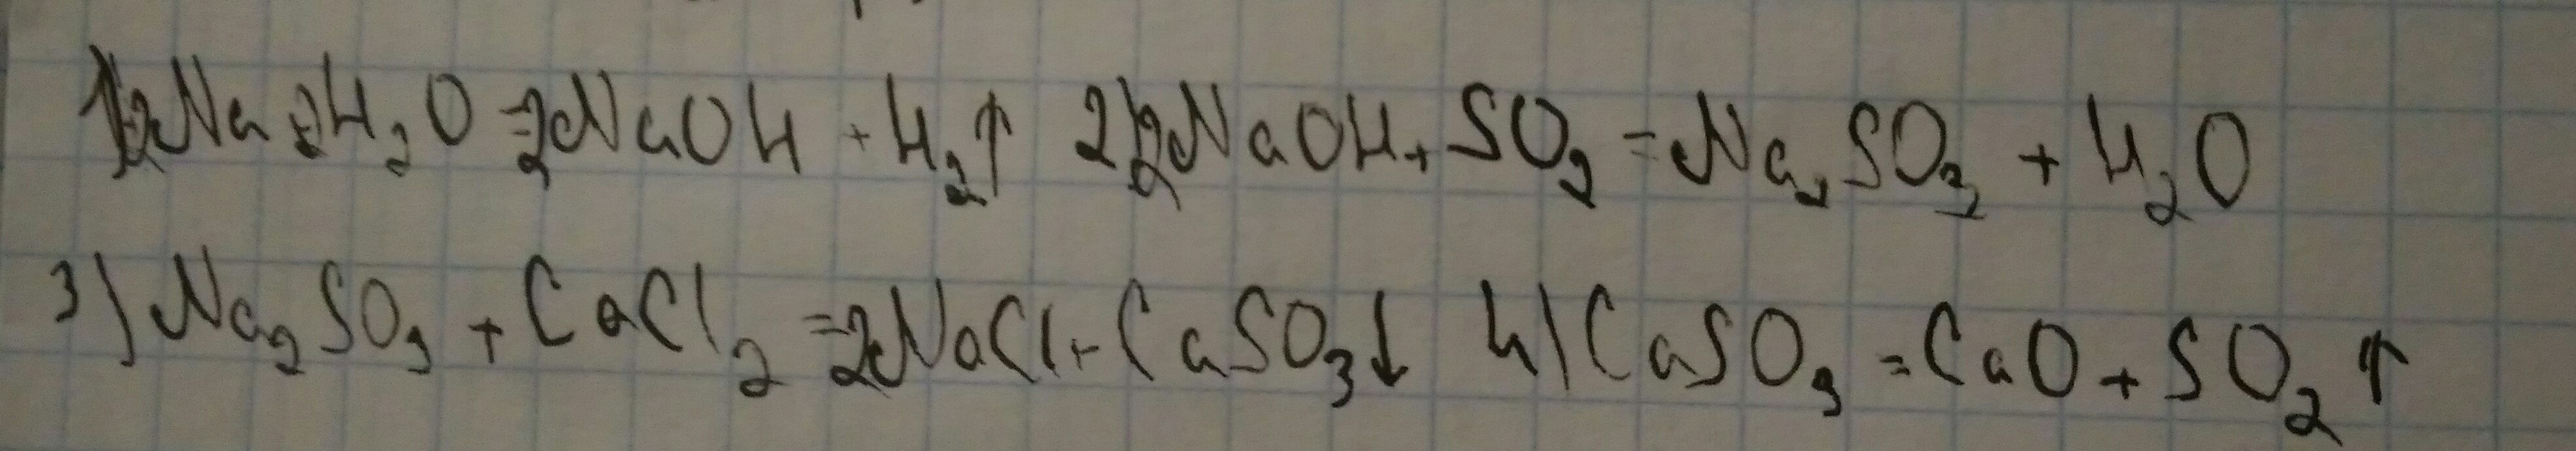 1) 2Na + 2H₂O = 2NaOH + H₂↑ 2) 2NaOH + SO₂ = Na₂SO₃ + H₂O
3) Na₂SO₃ + CaCl₂ = 2NaCl + CaSO₃↓ 4) CaSO₃ = CaO + SO₂↑